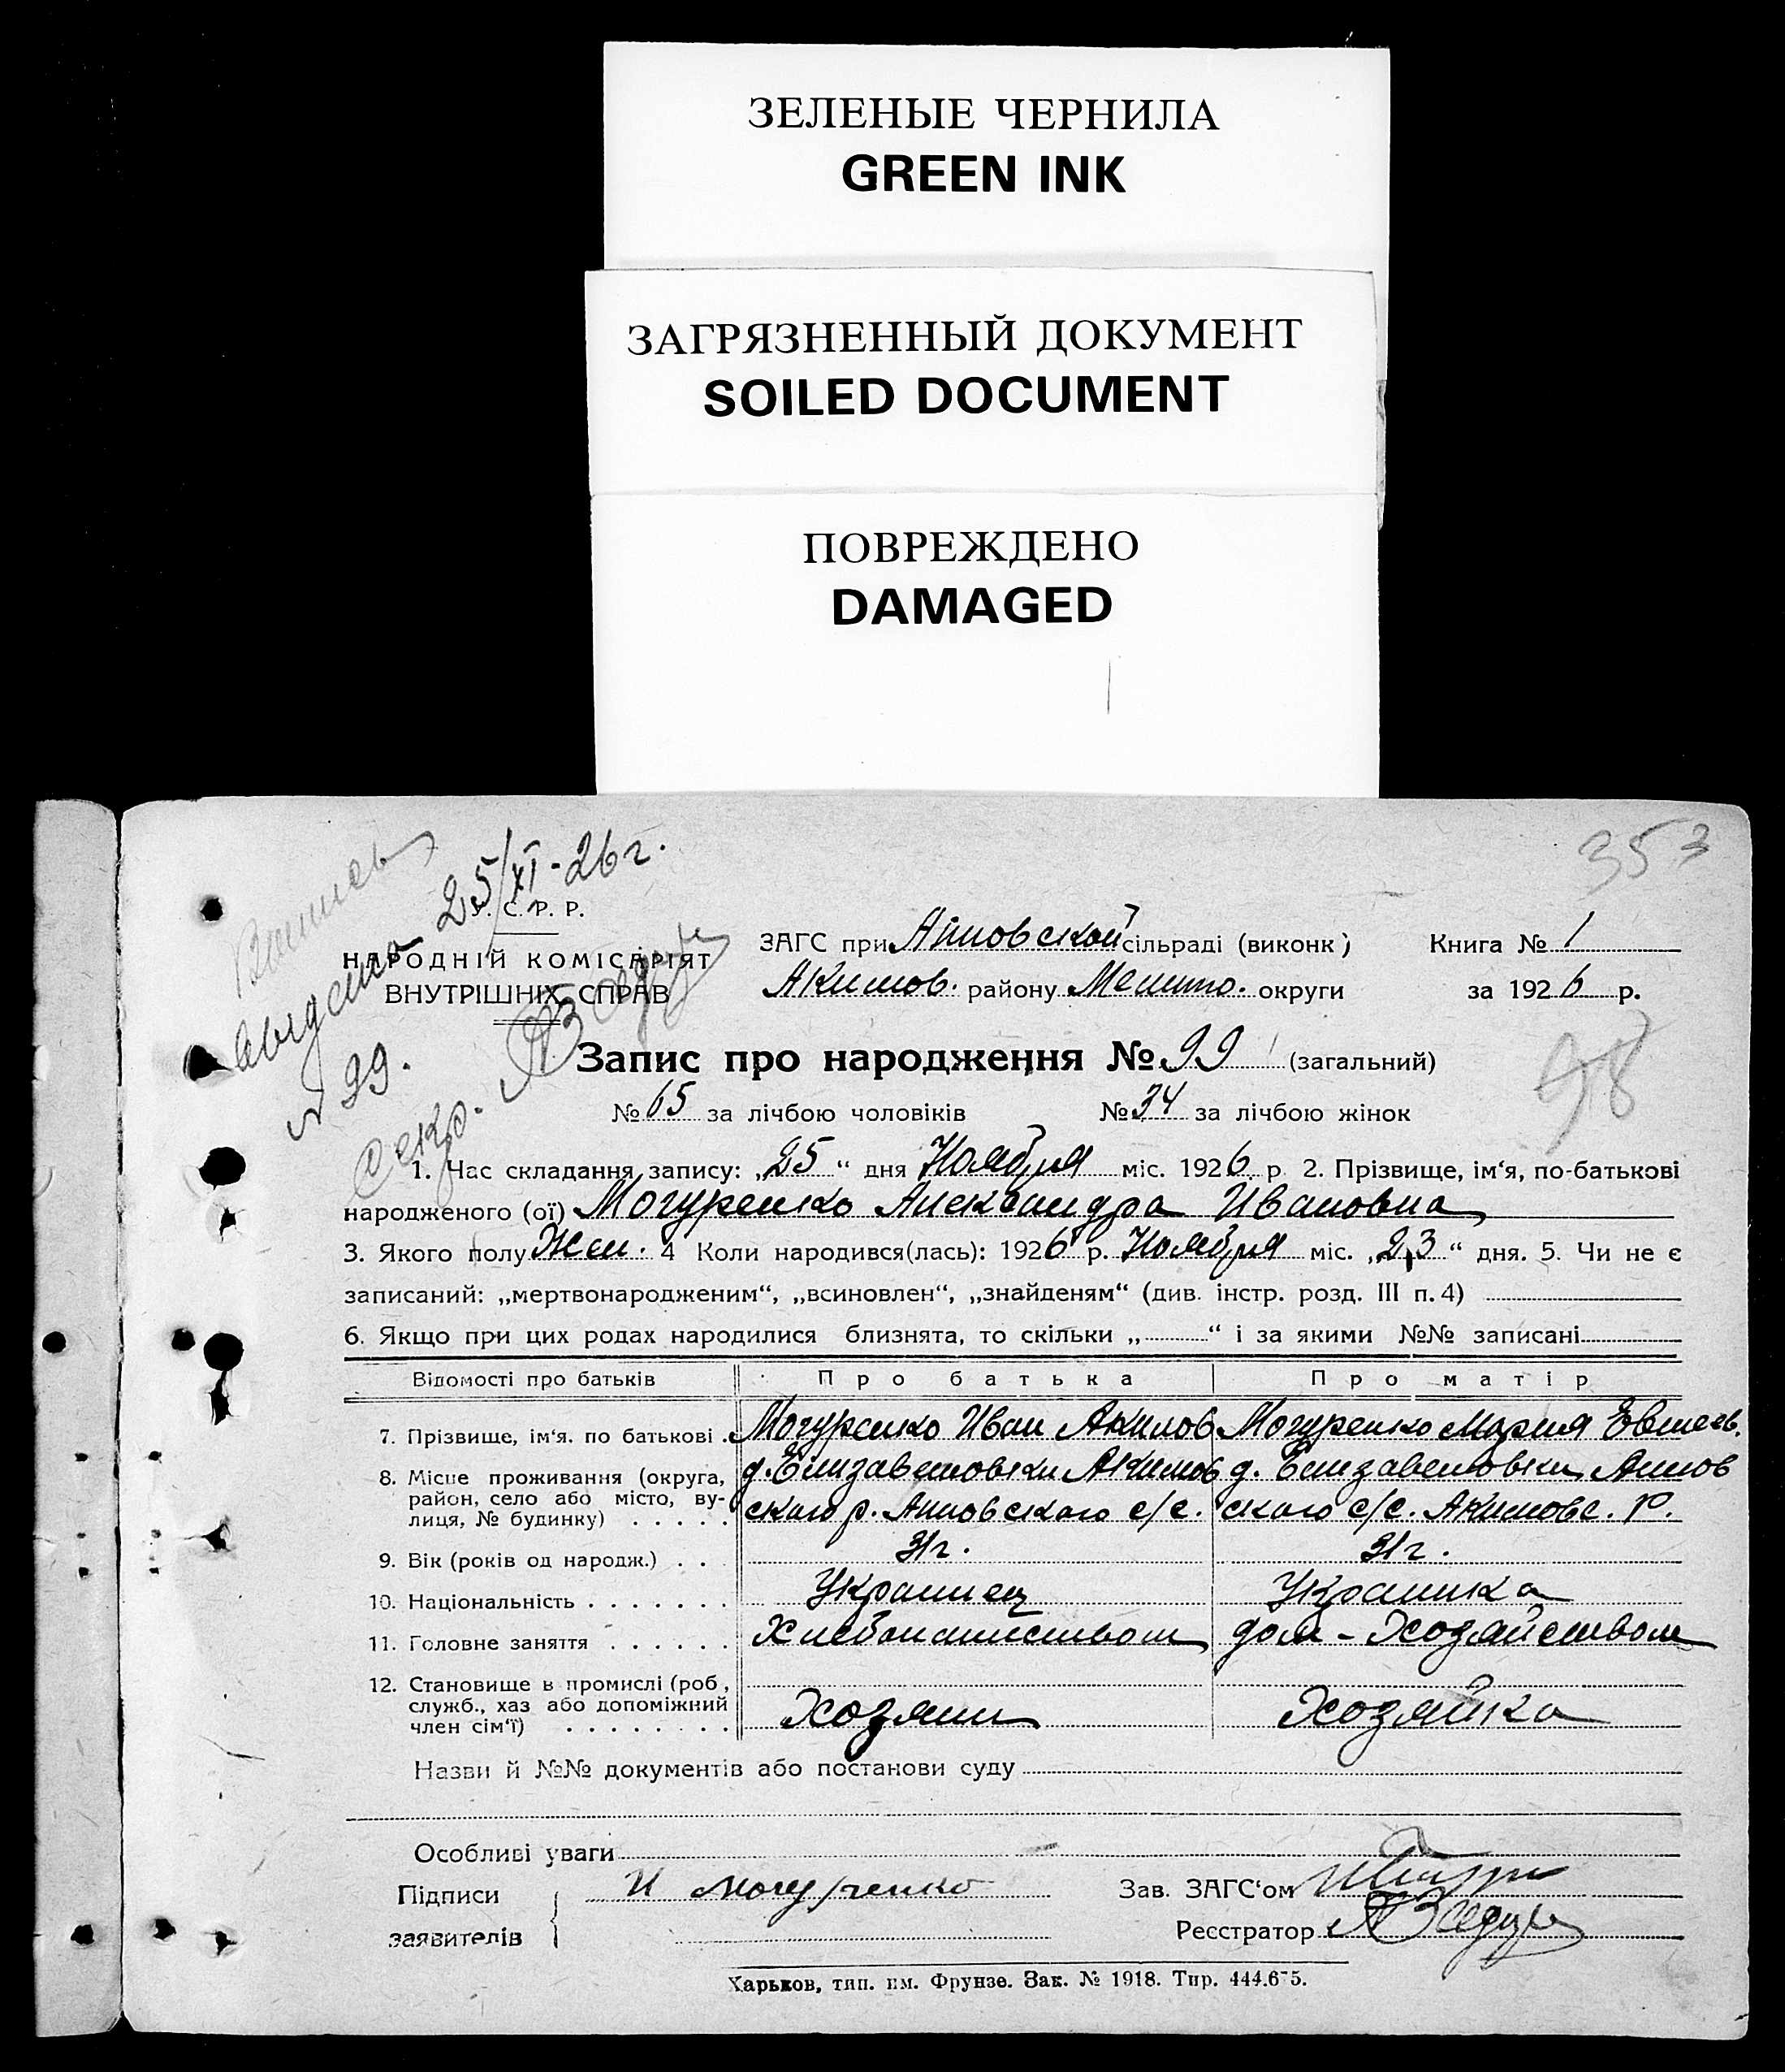 ЗЕЛЕНЫЕ ЧЕРНИЛА
GREEN INK
ЗАГРЯЗНЕННЫЙ ДОКУМЕНТ
SOILED DOCUMENT
ПОВРЕЖДЕНО
DAMAGED
353
25/XI-26 г.
№ 99.
Секр.
У. С. Р. Р.
НАРОДНІЙ КОМІСАРІЯТ
ВНУТРІШНІХ СПРАВ
ЗАГС при Аиповской сільраді (виконк) Книга № 1
Акимов. району Мелито. округи за 1926 р.
98
Запис про народження № 99 (загальний)
№ 65 за лічбою чоловіків № 34 за лічбою жінок
1. Час складання запису: „25“ дня Ноября міс. 1926 р 2. Прізвище, ім‘я, по-батькові
народженого (ої) Могуренко Александра Ивановна
3. Якого полу Жен. 4 Коли народився(лась): 1926 р. Ноября міс. „23“ дня. 5. Чи не є
записаний: „мертвонародженим“, „всиновлен“, „знайденям“ (див. інстр. розд. III п. 4)
6. Якщо при цих родах народилися близнята, то скільки „ “ і за якими №№ записані
Відомості про батьків Про батька Про матір
7. Прізвище, ім‘я. по батькові . Могуренко Иван Акимов Могуренко Мария Евшеев.
8. Місце проживання (округа, район, село або місто, вулиця, № будинку) . . . . . д. Елизаветовки Акимов д. Елизаветовки
ского р. с/с. ского с/с. Акимовс. р.
9. Вік (років од народж.) . . . 31 г. 31 г.
10. Національність . . . . . . . Украинец Украинка
11. Головне заняття . . . . . . Хлебопашеством дом - Хозяйством
12. Становище в промислі (роб, служб., хаз або допоміжний член сім‘ї) . . . . . . . . Хозяин Хозяйка
Назви й №№ документів або постанови суду
Особливі уваги
Підписи заявителів И Могуренко Зав. ЗАГС‘ом
Реєстратор
Харьков, тип. им. Фрунзе. Зак. № 1918. Тир. 444.675.